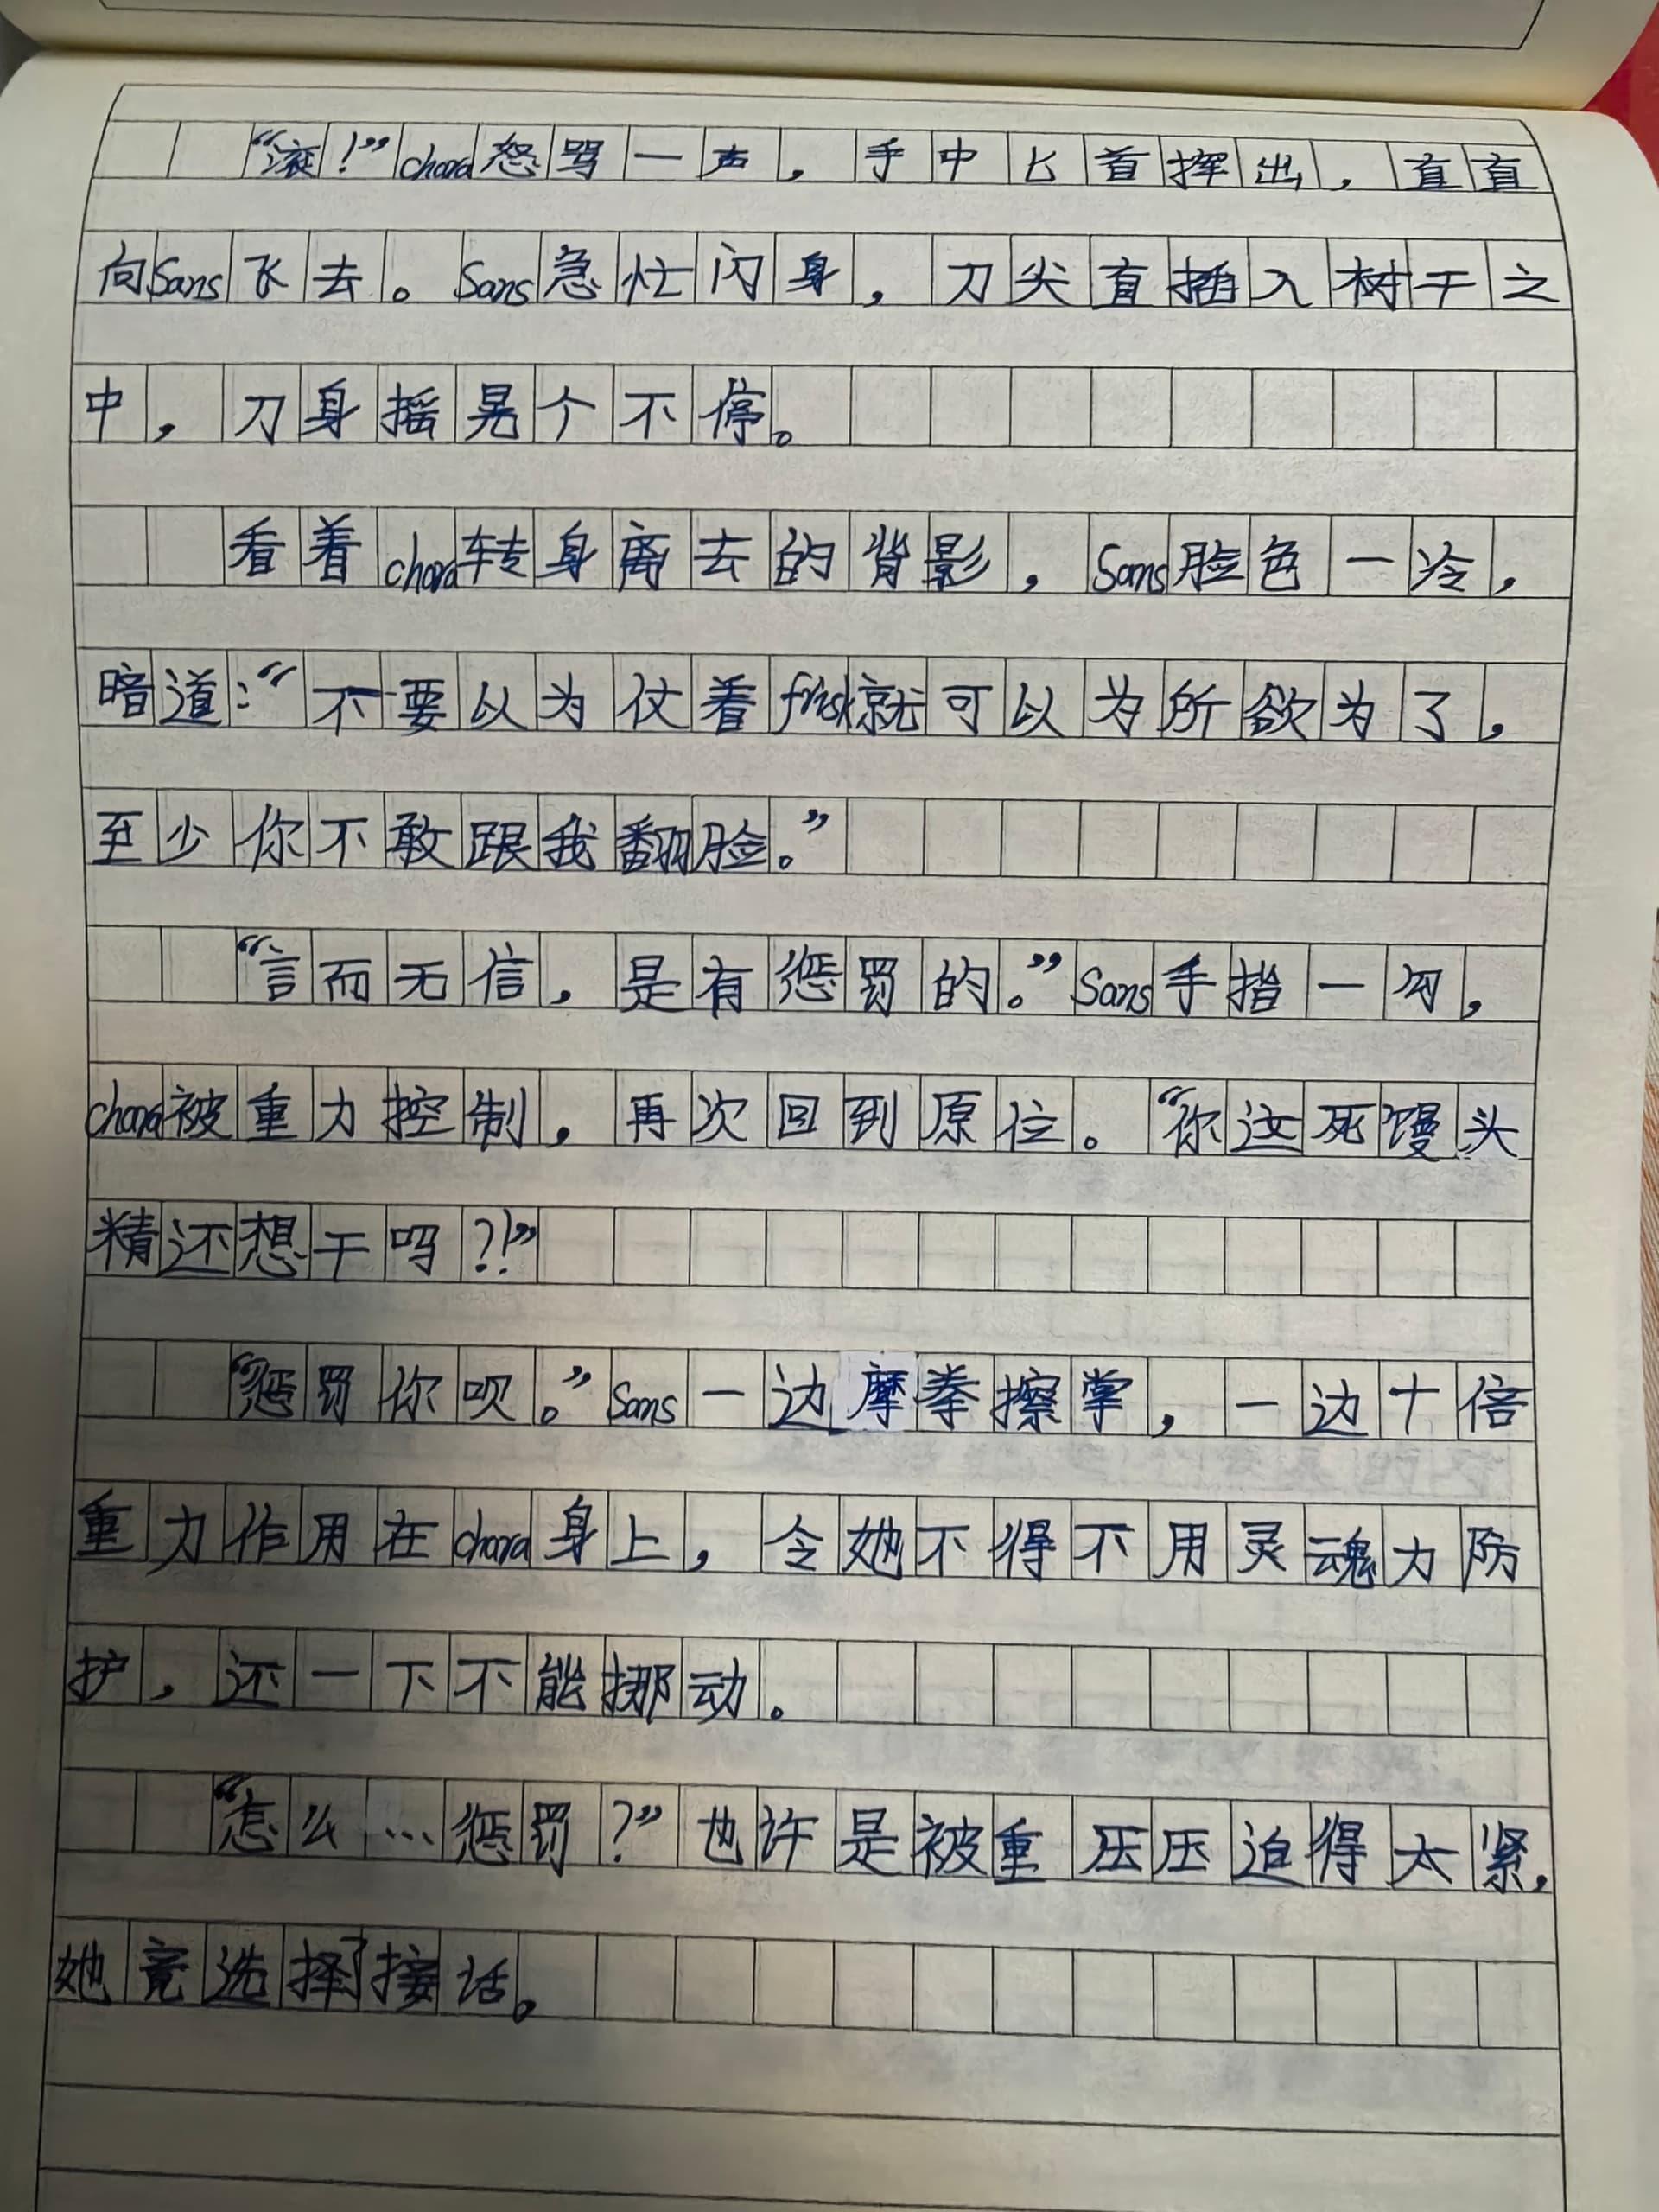 “滚！”chara怒骂一声，手中匕首挥出，直直
向Sans飞去。Sans急忙闪身，刀尖直插入树干之
中，刀身摇晃个不停。
看着chara转身离去的背影，Sans脸色一冷，
暗道：“不要以为仗着frisk就可以为所欲为了，
至少你不敢跟我翻脸。”
“言而无信，是有惩罚的。”Sans手指一勾，
chara被重力控制，再次回到原位。“你这死馒头
精还想干吗？！”
“惩罚你呗。”Sans一边摩拳擦掌，一边十倍
重力作用在chara身上，令她不得不用灵魂力防
护，还一下不能挪动。
“怎么…惩罚？”也许是被重压压迫得太紧，
她竟选择了接话。